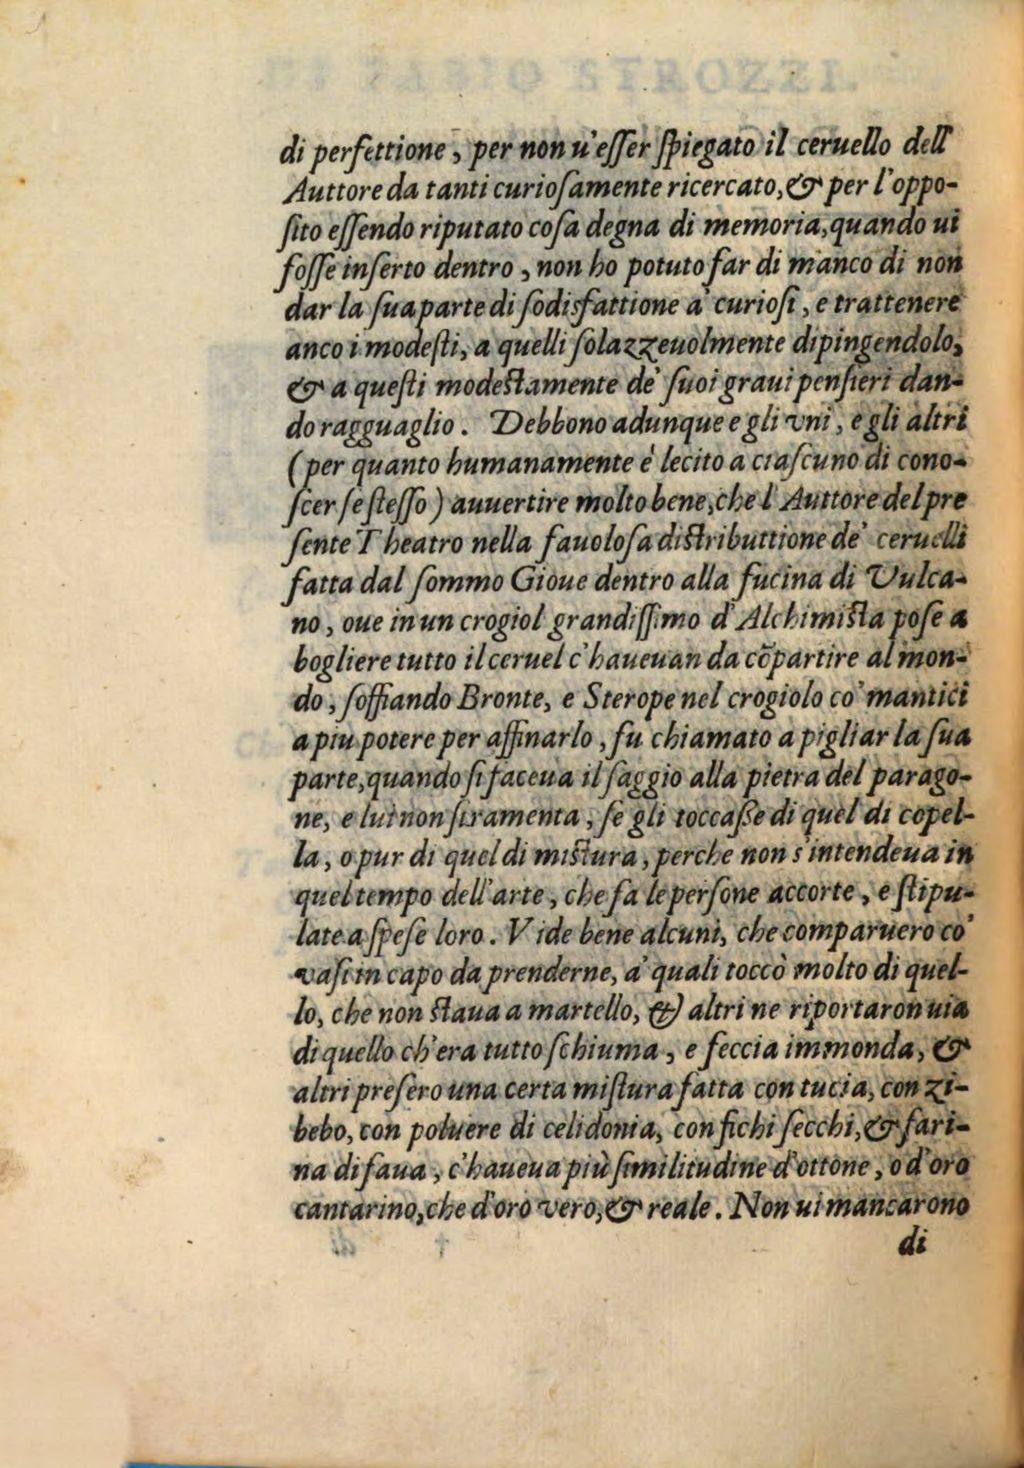 di perfettione, per non u'eſſer ſpiegato il ceruello dell'
Auttore da tanti curioſamente ricercato, & per l'oppo-
ſito eſſendo riputato coſa degna di memoria, quando ui
foſſe inſerto dentro, non ho potuto far di manco di non
dar la ſua parte di ſodisfattione a' curioſi, e trattenere
anco i modeſti, a quelli ſolazzeuolmente dipingendolo,
& a queſti modeſtamente de' ſuoi graui penſieri dan-
do ragguaglio. Debbono adunque e gli vni, e gli altri
(per quanto humanamente è lecito a ciaſcuno di cono-
ſcer ſe ſteſſo) auuertire molto bene, che l'Auttore del pre
ſente Theatro nella fauoloſa diſtributtione de' ceruelli
fatta dal ſommo Gioue dentro alla fucina di Vulca-
no, oue in un crogiol grandiſſimo d'Alchimiſta poſe a
bogliere tutto il ceruel c'haueuan da cõpartire al mon-
do, ſoffiando Bronte, e Sterope nel crogiolo co' mantici
a piu potere per affinarlo, fu chiamato a pigliar la ſua
parte, quando ſi faceua il ſaggio alla pietra del parago-
ne, e lui non ſi ramenta, ſe gli toccaſſe di quel di copel-
la, o pur di quel di miſtura, perche non s'intendeua in
quel tempo dell'arte, che fa le perſone accorte, e ſtipu-
late a ſpeſe loro. Vide bene alcuni, che comparuero co'
vaſi in capo da prenderne, a' quali toccò molto di quel-
lo, che non ſtaua a martello, & altri ne riportaron uia
di quello ch'era tutto ſchiuma, e feccia immonda, &
altri preſero una certa miſtura fatta con tucia, con zi-
bebo, con poluere di celidonia, con fichi ſecchi, & fari-
na di faua, c'haueua più ſimilitudine d'ottone, o d'oro
cantarino, che d'oro vero, & reale. Non ui mancarono
di